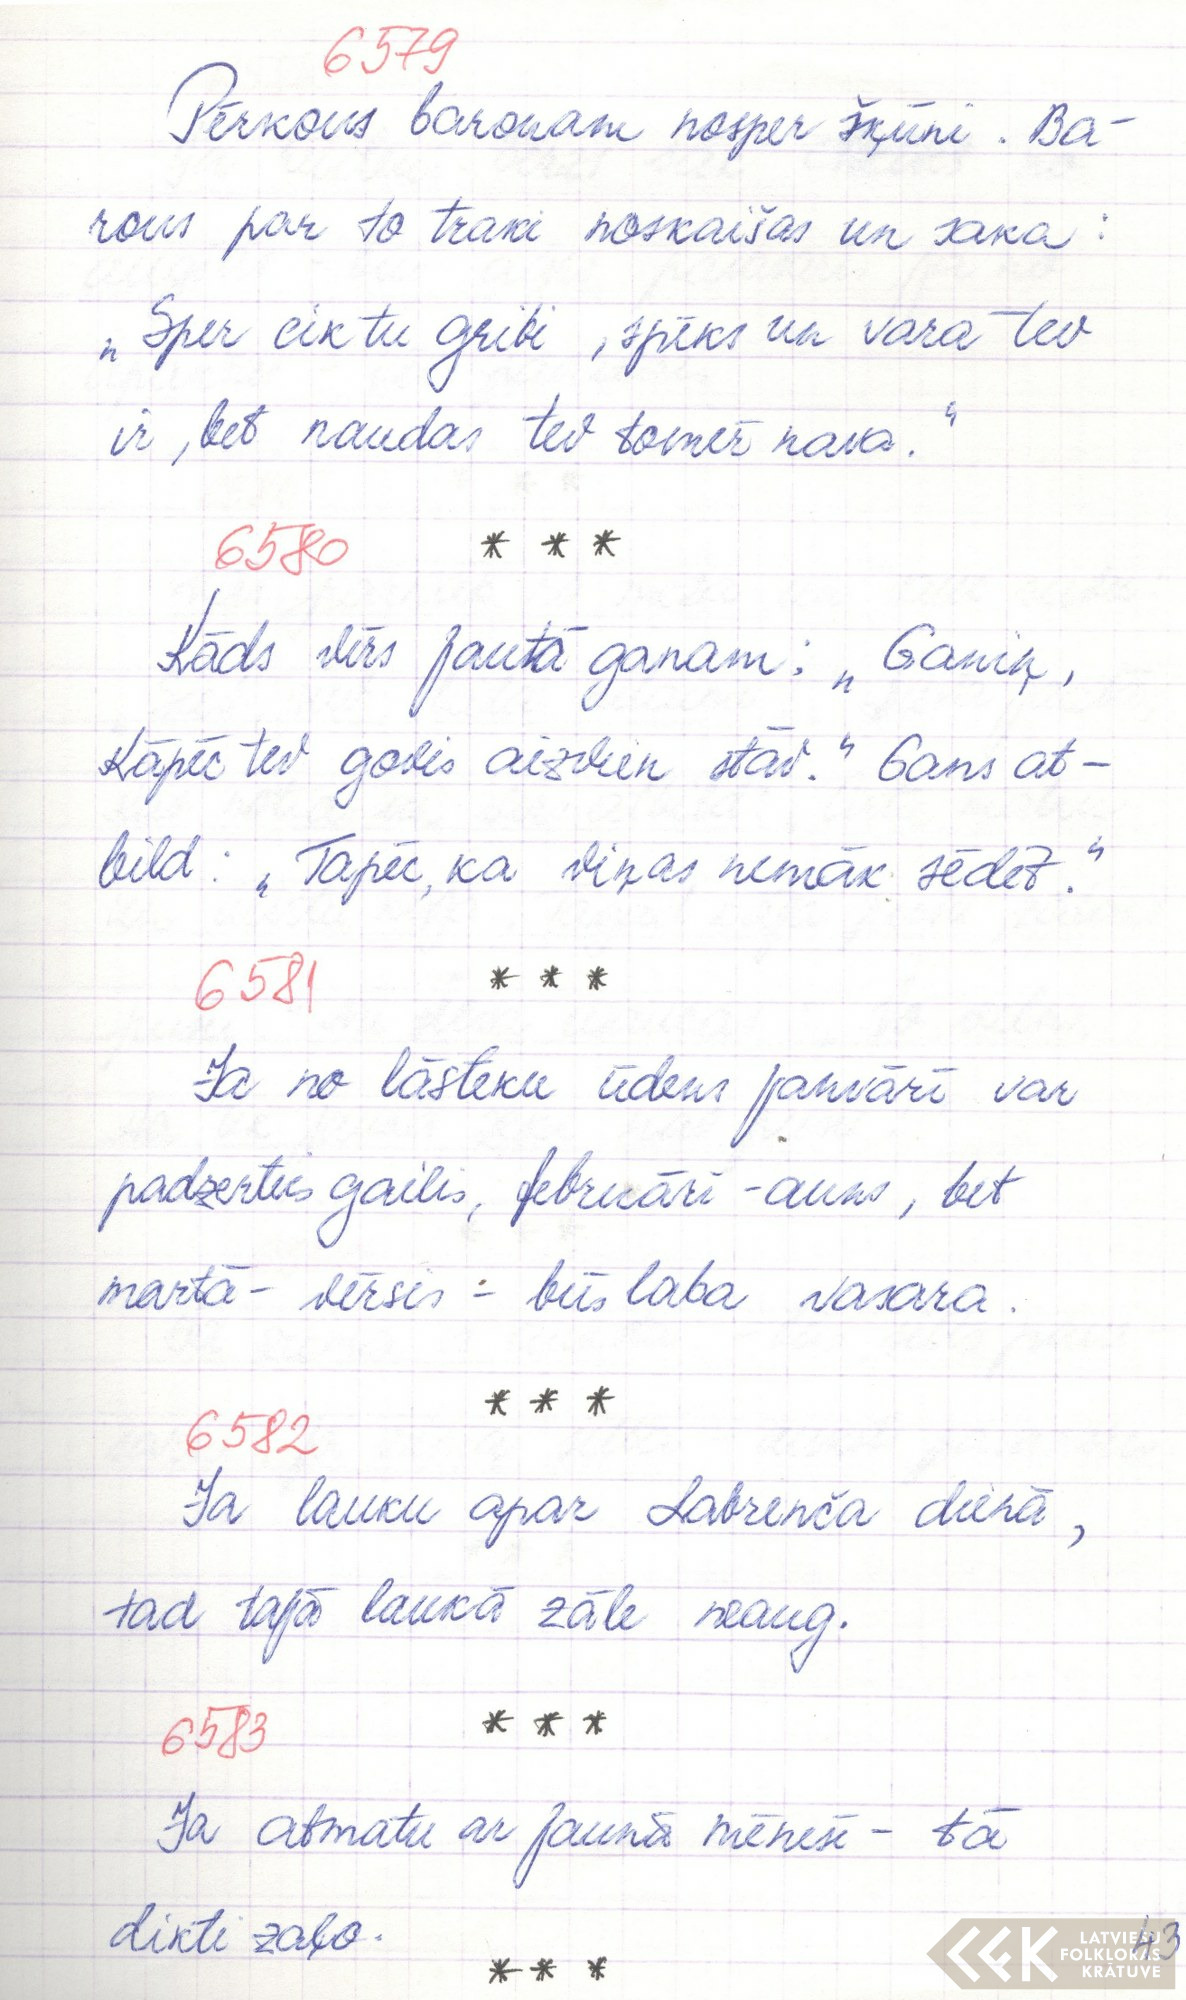 6579
Pērkons baronam nosper šķūni. Ba-
rons par to traki noskaišas un saka:
„Sper cik tu gribi, spēks un vara tev
ir, bet naudas tev tomēr nava."
6580 * * *
Kāds vīrs jautā ganam: „Ganiņ,
kāpēc tev govis aizvien stāv." Gans at-
bild: „Tapēc, ka viņas nemāk sēdēt."
6581 * * *
Ja no lāsteku ūdens janvārī var
padzerties gailis, februārī - auns, bet
martā - vērsis - būs laba vasara.
* * *
6582
Ja lauku apar Labrenča dienā,
tad tajā laukā zāle neaug.
6583 * * *
Ja atmatu ar jaunā mēnesī - tā
dikti zaļo.
* * *
43
LATVIEŠU
FOLKLORAS
KRĀTUVE